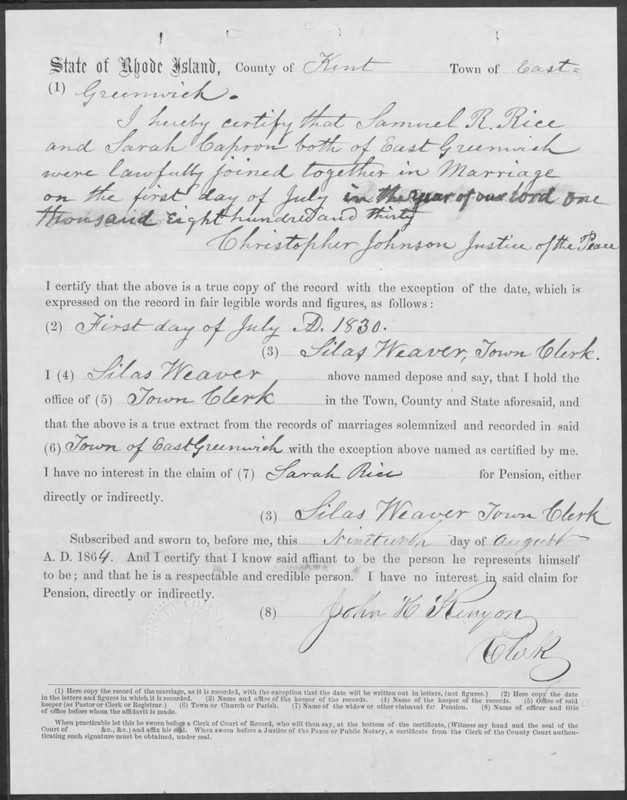 State of Rhode Island, County of Kent Town of East=
(1) Greenwich.
I hereby certify that Samuel R. Rice
and Sarah Capron both of East Greenwich
were lawfully joined together in Marriage
on the first day of July in the year of our Lord one
thousand eight hundred and thirty
Christopher Johnson Justice of the Peace
I certify that the above is a true copy of the record with the exception of the date, which is
expressed on the record in fair legible words and figures, as follows:
(2) First day of July A.D. 1830.
(3) Silas Weaver, Town Clerk.
I (4) Silas Weaver above named depose and say, that I hold the
office of (5) Town Clerk in the Town, County and State aforesaid, and
that the above is a true extract from the records of marriages solemnized and recorded in said
(6) Town of East Greenwich with the exception above named as certified by me.
I have no interest in the claim of (7) Sarah Rice for Pension, either
directly or indirectly.
(3) Silas Weaver Town Clerk
Subscribed and sworn to, before me, this Nineteenth day of August
A. D. 1864. And I certify that I know said affiant to be the person he represents himself
to be; and that he is a respectable and credible person. I have no interest in said claim for
Pension, directly or indirectly.
(8) John H Kenyon
Clerk
(1) Here copy the record of the marriage, as it is recorded, with the exception that the date will be written out in letters, (not figures.) (2) Here copy the date
in the letters and figures it is recorded. (3) Name and office of the keeper of the records. (4) Name of the keeper of the records. (5) Office of said
keeper (as Pastor or Clerk or Registrar.) (6) Town or Church or Parish. (7) Name of the widow or other claimant for Pension. (8) Name of officer and title
of office before whom the affidavit is made.
When practicable let this be sworn before a Clerk of Court of Record, who will then say, at the bottom of the certificate, (Witness my hand and the seal of the
Court of &c., &c.) and affix his seal. When sworn before a Justice of the Peace or Public Notary, a certificate from the Clerk of the County Court authen-
ticating such signature must be obtained, under seal.